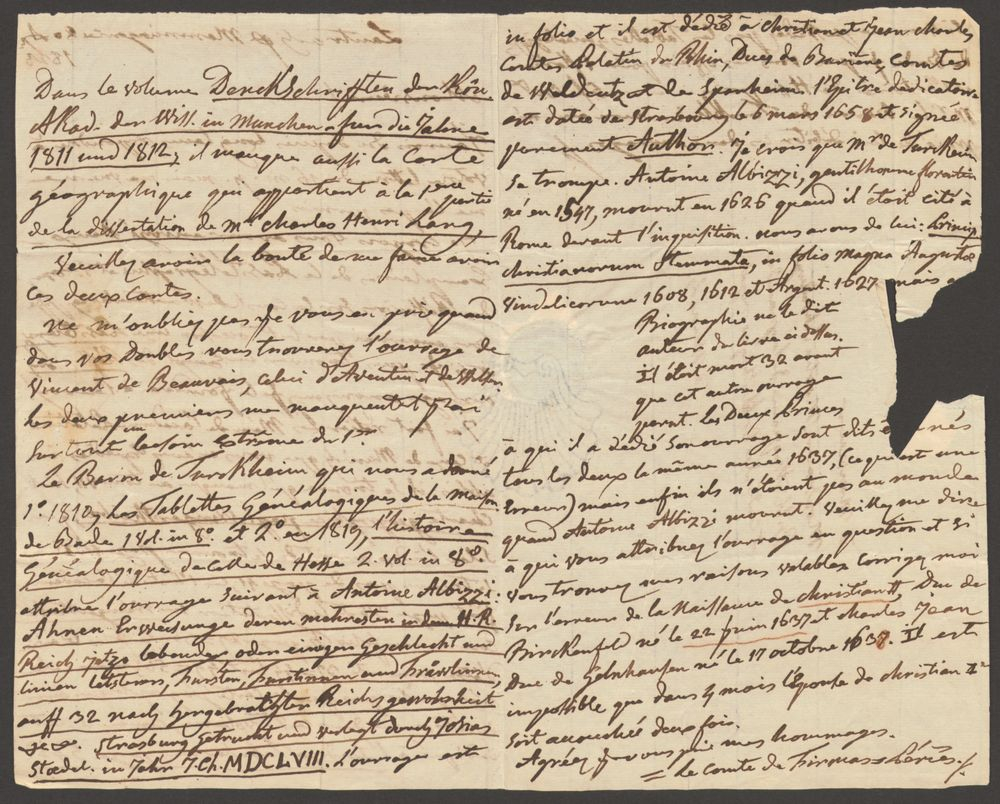 Dans le volume Denckschrifften der Kön.
Akad. der Wiss. in Munchen fur die Jahre
1811 und 1812, il manque aussi la Carte
géographique qui appartient à la 1ere partie
de la dissertation de Mr Charles Henri Lang,
Veuillez avoir la bonté de me faire avoir
ces deux Cartes.
Ne m'oubliez pas je vous en prie quand
dans vos Doubles vous trouverez l'ouvrage de
Vincent de Beauvais, celui d'Aventin et de
les deux premiers me manquent et j'ai
surtout besoin extrême du 1er
Le Baron de Turckheim qui nous a donné
1º. 1810, Les Tablettes Généalogiques de la Maison
de Bade 1 Vol. in 8º. et 2º. en 1819, l'histoire
Généalogique de Celle de Hesse 2. vol. in 8º.
attribue l'ouvrage suivant à Antoine Albizzi.
Ahnen Erweisunge deren mehresten in dem H. R.
Reich jetzo lebenden oder einigen Geschlecht und
linien letstern, Fursten, Furstinnen und Fräwlinnen
auff 32 nach hergebrachten Reichs gewohnheit
Strasburg getruckt und verlegt durch Josias
Stædel. in Jahr J. Ch. MDCLVIII. L'ouvrage est
in folio et il est dédié à Christian et Jean Charles
Comtes Palatin du Rhin, Ducs de Bavière, Comtes
de Veldentz et de Sponheim. l'Epitre dedicatoire
est datée de Strasbourg le 6 mars 1658 et signée
purement Author. Je crois que Mr de Turckheim
se trompe. Antoine Albizzi, gentilhomme florentin
né en 1547, mourut en 1626 quand il étoit cité à
Rome devant l'inquisition. nous avons de lui: Princip.
Christianorum Stemmata, in folio magna Augustæ
Vindelicorum 1608, 1612 et Argent. 1627 mais
Biographie ne le dit
auteur du livre ci dessus.
Il étoit mort 32 avant
que cet autre ouvrage
parut. les Deux Princes
à qui il a dédié son ouvrage sont dits nés
tous les deux la même année 1637, (ce qui est une
Erreur) mais enfin ils n'étoient pas au monde
quand Antoine Albizzi mourut. Veuillez me dire
a qui vous attribuez l'ouvrage en question et si
vous trouvez mes raisons valables corrigez moi
sur l'erreur de la Naissance de Christian II, Duc de
Birckenfeld né le 22 juin 1637 et Charles Jean
Duc de Gelnhausen né le 17 octobre 1637. Il est
impossible que dans 4 mois l'Epouse de Christian Ir
soit accouchée deux fois.
Agréez je vous prie mes hommages.
= Le Comte de Firmas=Périés./.